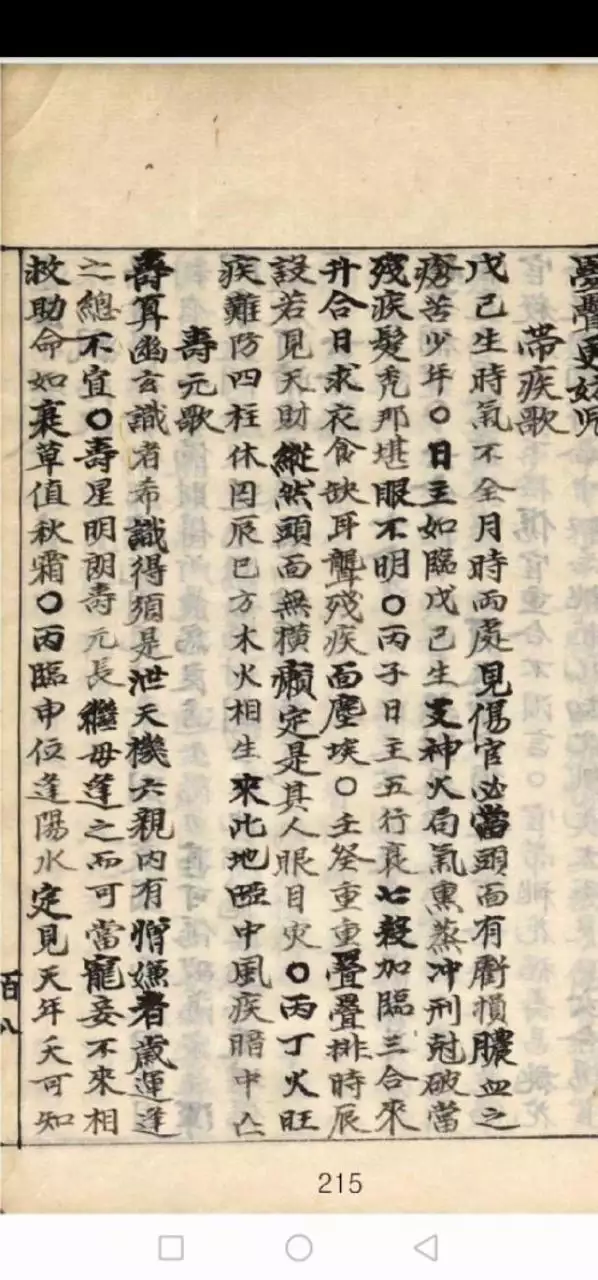 疊更妨児
帶疾歌
戊己生時氣不全月時兩處見傷官必當頭面有虧損膿血之
瘡苦少年〇日主如臨戊己生支神火局氣熏蒸冲刑尅破當
殘疾髮禿那堪眼不明〇丙子日主五行衰七殺加臨三合來
升合日求衣食缺耳聾殘疾面塵埃〇壬癸重重疊疊排時辰
設若見天財縱然頭面無橫癩定是其人眼目灾〇丙丁火旺
疾難防四柱休囚辰巳方木火相生來此地啞中風疾暗中亡
壽元歌
壽算幽玄識者希識得須是泄天機六親內有憎嫌者歲運逢
之總不宜〇壽星明朗壽元長繼母逢之而可當寵妾不來相
救助命如衰草值秋霜〇丙臨申位逢陽水定見天年夭可知
百八
215